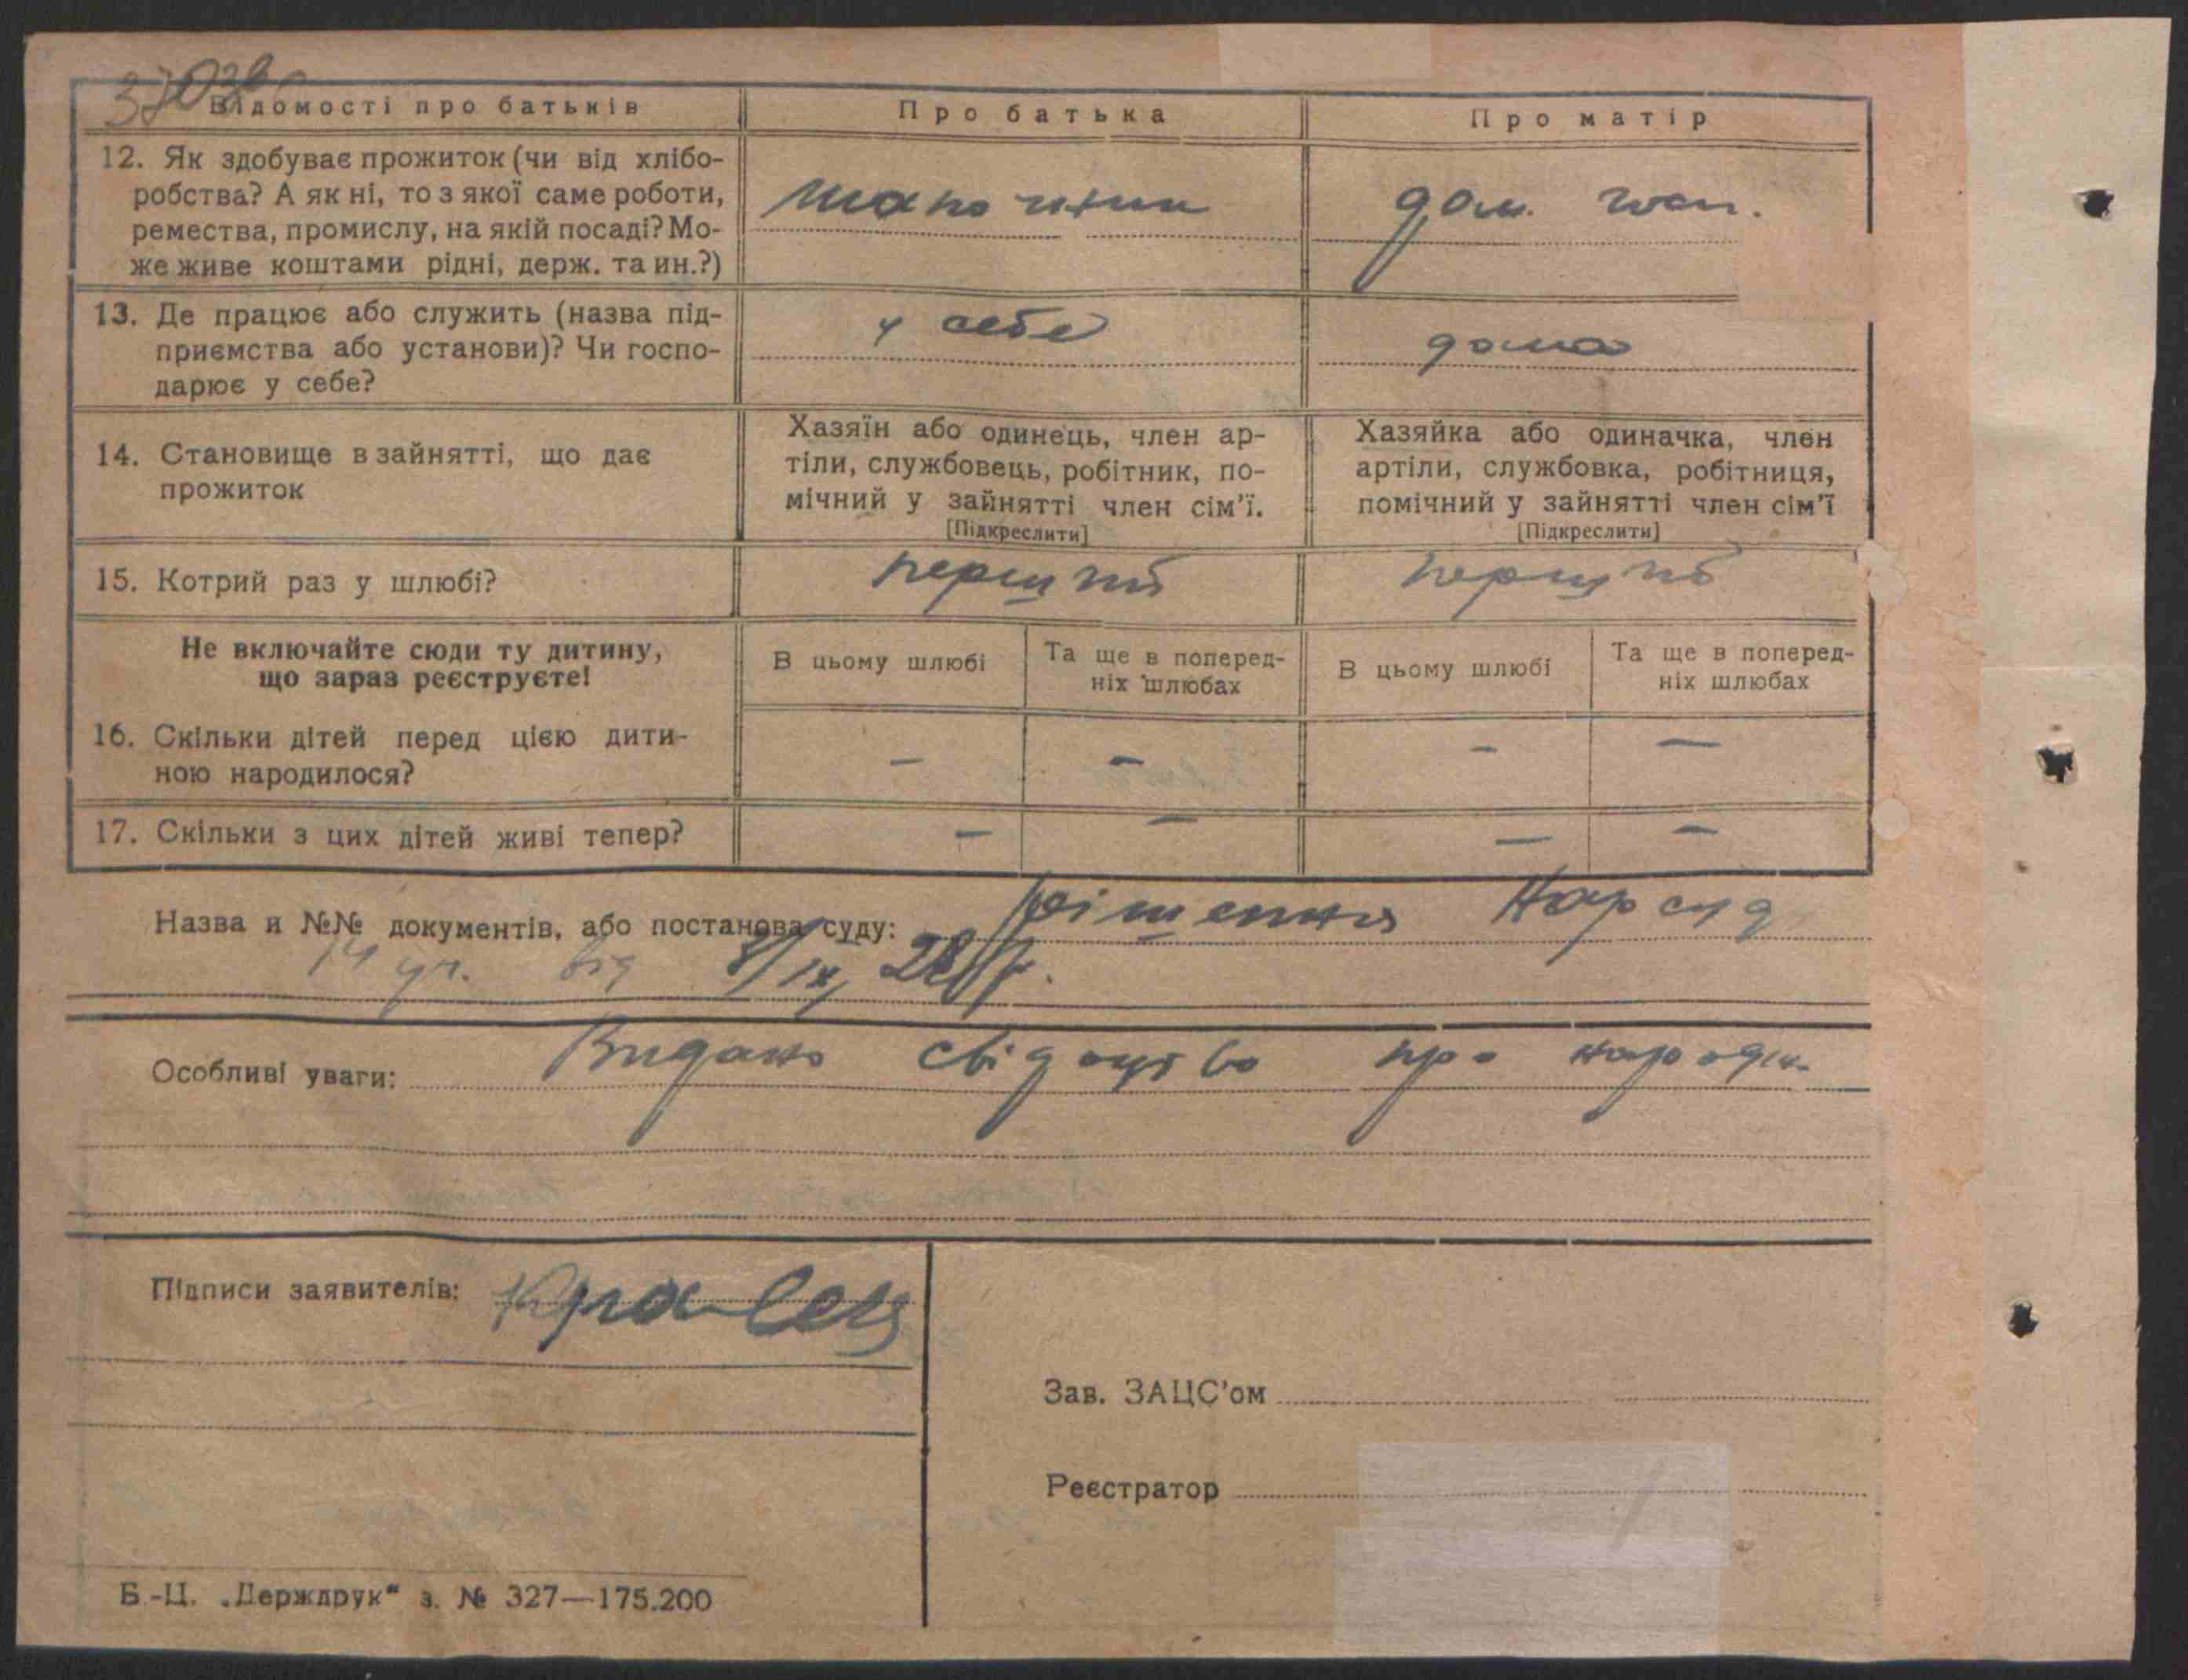 Відомості про батьків
Про батька
Про матір
12. Як здобуває прожиток (чи від хлібо-
робства? А як ні, то з якої саме роботи,
ремества, промислу, на якій посаді? Мо-
же живе коштами рідні, держ. та ин.?)
шапошник
дом. госп.
13. Де працює або служить (назва під-
приємства або установи)? Чи госпо-
дарює у себе?
у себе
дома
14. Становище в зайнятті, що дає
прожиток
Хазяїн або одинець, член ар-
тіли, службовець, робітник, по-
мічний у зайнятті член сім'ї.
[Підкреслити]
Хазяйка або одиначка, член
артіли, службовка, робітниця,
помічний у зайнятті член сім'ї
[Підкреслити]
15. Котрий раз у шлюбі?
перший
перший
Не включайте сюди ту дитину,
що зараз реєструєте!
В цьому шлюбі
Та ще в поперед-
ніх шлюбах
В цьому шлюбі
Та ще в поперед-
ніх шлюбах
16. Скільки дітей перед цією дити-
ною народилося?
— — — —
17. Скільки з цих дітей живі тепер?
— — — —
Назва и №№ документів, або постанова суду: рішення Нарсуд
14 уч. від 8/IX 28 р.
Особливі уваги: Видано свідоцтво про народж.
Підписи заявителів: Кравец
Зав. ЗАЦС'ом
Реєстратор
Б.-Ц. „Держдрук“ з. № 327—175.200